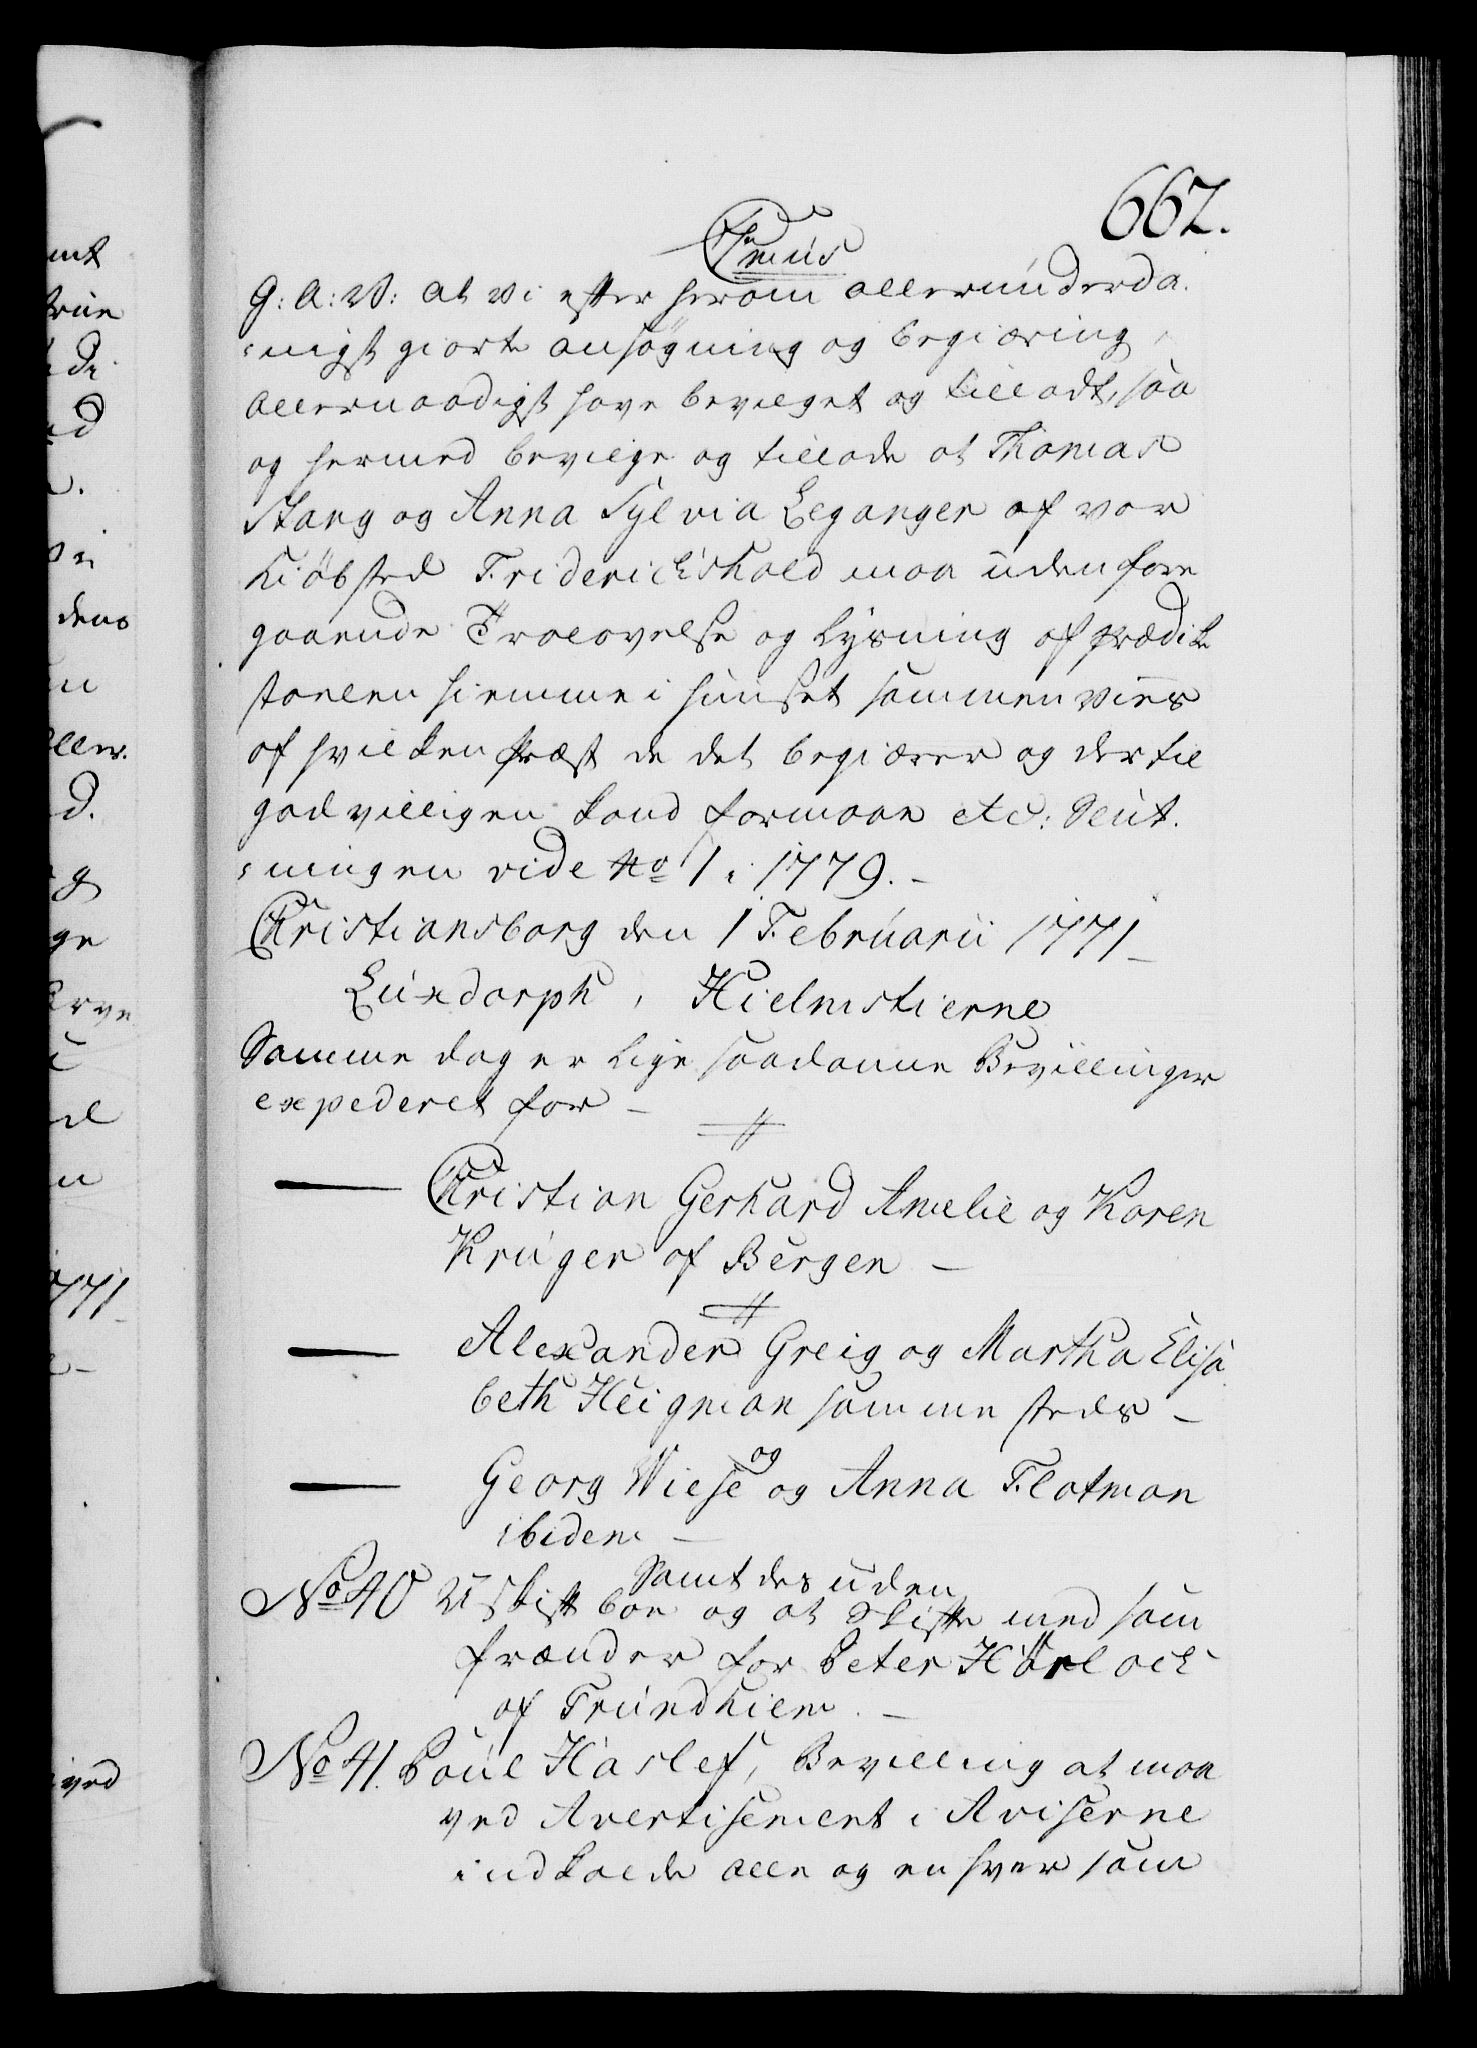 662.
Chr: 7mus
G: A: V: at vi efter herom allerunderda-
-nigst giorte ansøgning og begiæring,
allernaadigst have bevilget og tilladt, saa
og hermed bevilge og tillade at Thomas
Stang og Anna Sylvia Leganger af vor
Kiøbsted Friderichshald maa uden fore
gaaende Trolovelse og Lysning af Prædike
stoelen hiemme i Huuset sammenvies
af hvilken Præst de det begiærer og dertil
godvilligen kand formaae etc: Slut-
-ningen vide No 1 i 1779.
Christiansborg den 1 Februarii 1771
Luxdorph, Hielmstierne
Samme dag er lige saadanne Bevillinger
expederet for
Christian Gerhard Amelie og Karen
Krüger af Bergen
Alexander Greig og Martha Elisa
beth Heigman sammesteds
og
Georg Wiese og Anna Flotman
ibidem
Samt des uden
No 40 Uskift boe og at Skifte med Sam
frænder for Peter Hårlock
af Trundhiem.
No 41. Poul Haslef, Bevilling at maa
ved Avertisement i Aviserne
indkalde alle og enhver som
amt
di
ed
vi
dens
en
Aller.
d.
g
ge
Arve
el
n
1771
ved